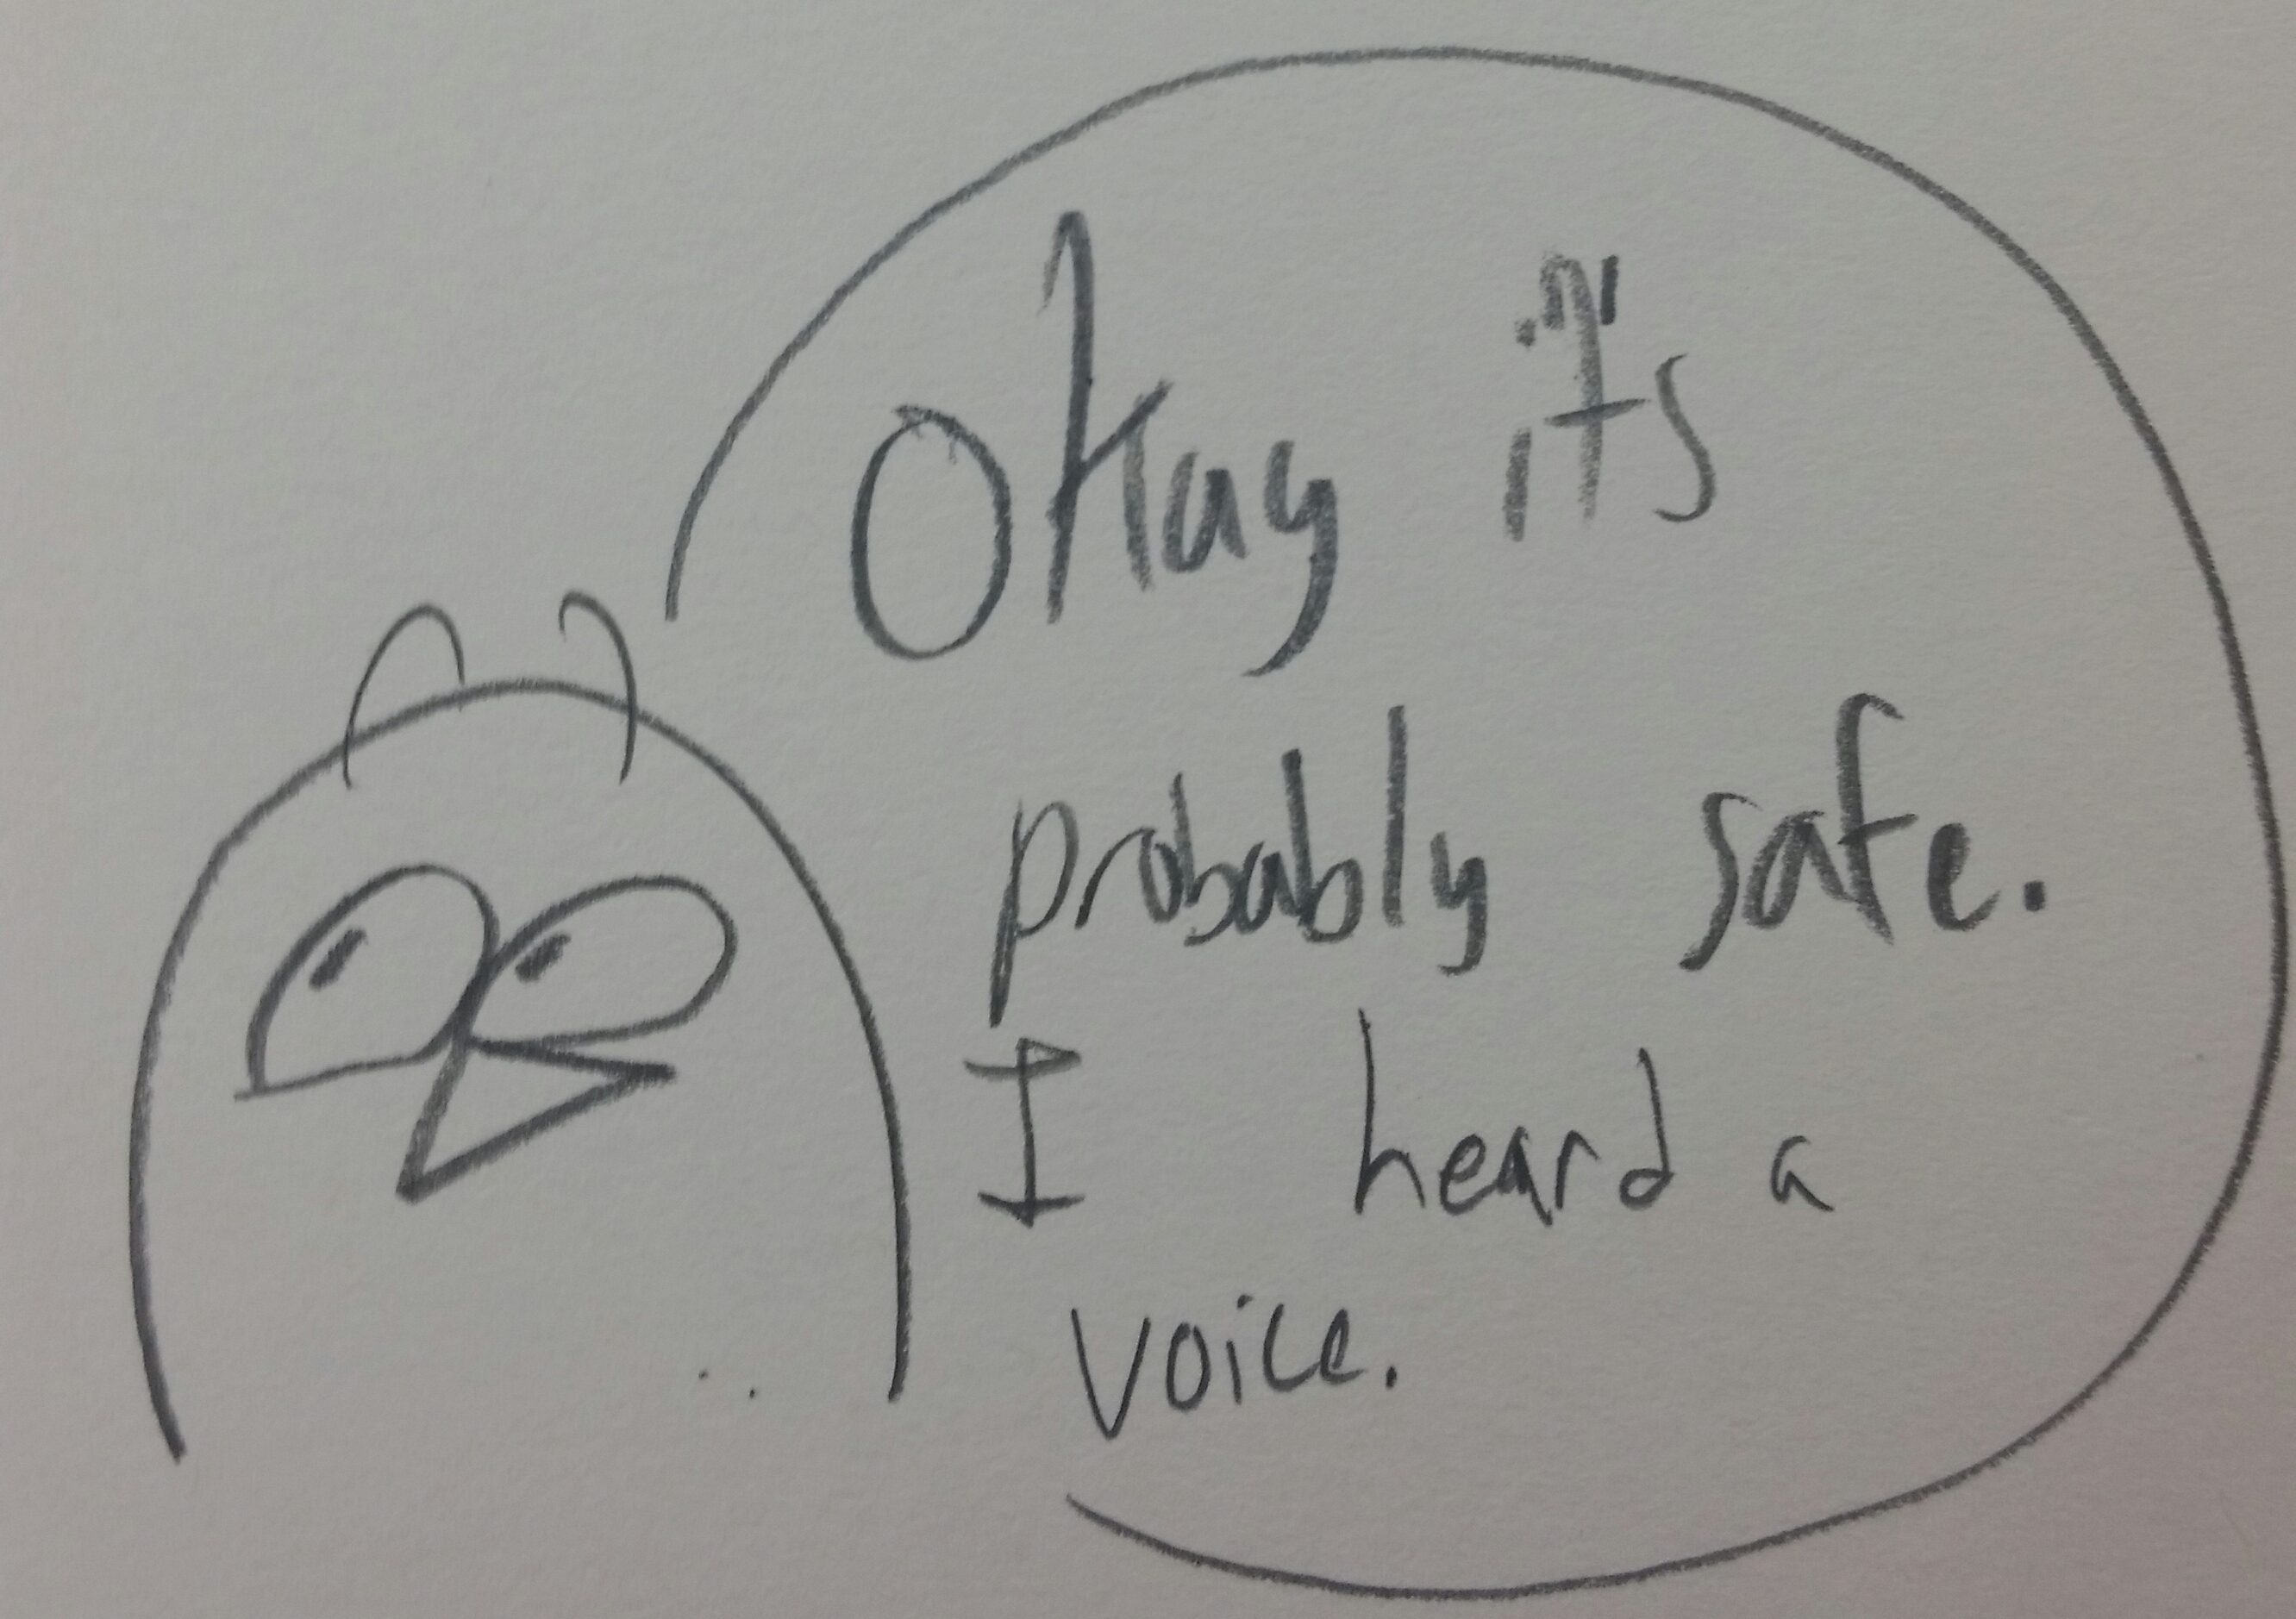 Okay it's
probably safe.
I heard a
voice.